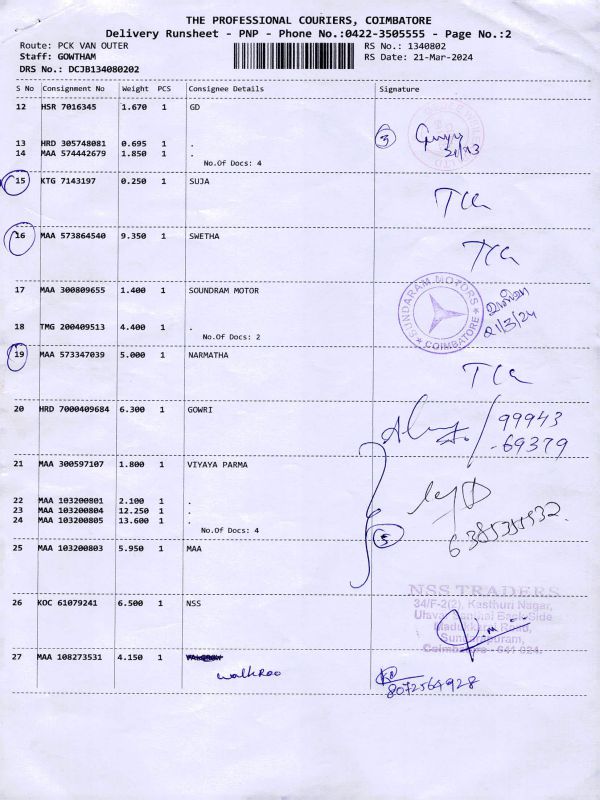 THE PROFESSIONAL COURIERS, COIMBATORE
Delivery Runsheet - PNP - Phone No.:0422-3505555 - Page No.:2
Route: PCK VAN OUTER RS No.: 1340802
Staff: GOWTHAM RS Date: 21-Mar-2024
DRS No.: DCJB134080202
S No Consignment No Weight PCS Consignee Details Signature
12 HSR 7016345 1.670 1 GD
3
13 HRD 305748081 0.695 1 .
14 MAA 574442679 1.850 1 .
No.Of Docs: 4
15 KTG 7143197 0.250 1 SUJA
16 MAA 573864540 9.350 1 SWETHA
17 MAA 300809655 1.400 1 SOUNDRAM MOTOR
SUNDARAM MOTORS
COIMBATORE
21/3/24
18 TMG 200409513 4.400 1 .
No.Of Docs: 2
19 MAA 573347039 5.000 1 NARMATHA
20 HRD 7000409684 6.300 1 GOWRI
99943
-69379
21 MAA 300597107 1.800 1 VIYAYA PARMA
22 MAA 103200801 2.100 1 .
23 MAA 103200804 12.250 1 .
24 MAA 103200805 13.600 1 .
No.Of Docs: 4
5
25 MAA 103200803 5.950 1 MAA
26 KOC 61079241 6.500 1 NSS
NSS TRADERS
34/F-2(2), Kasthuri Nagar,
27 MAA 108273531 4.150 1
walkRoo
8072564928